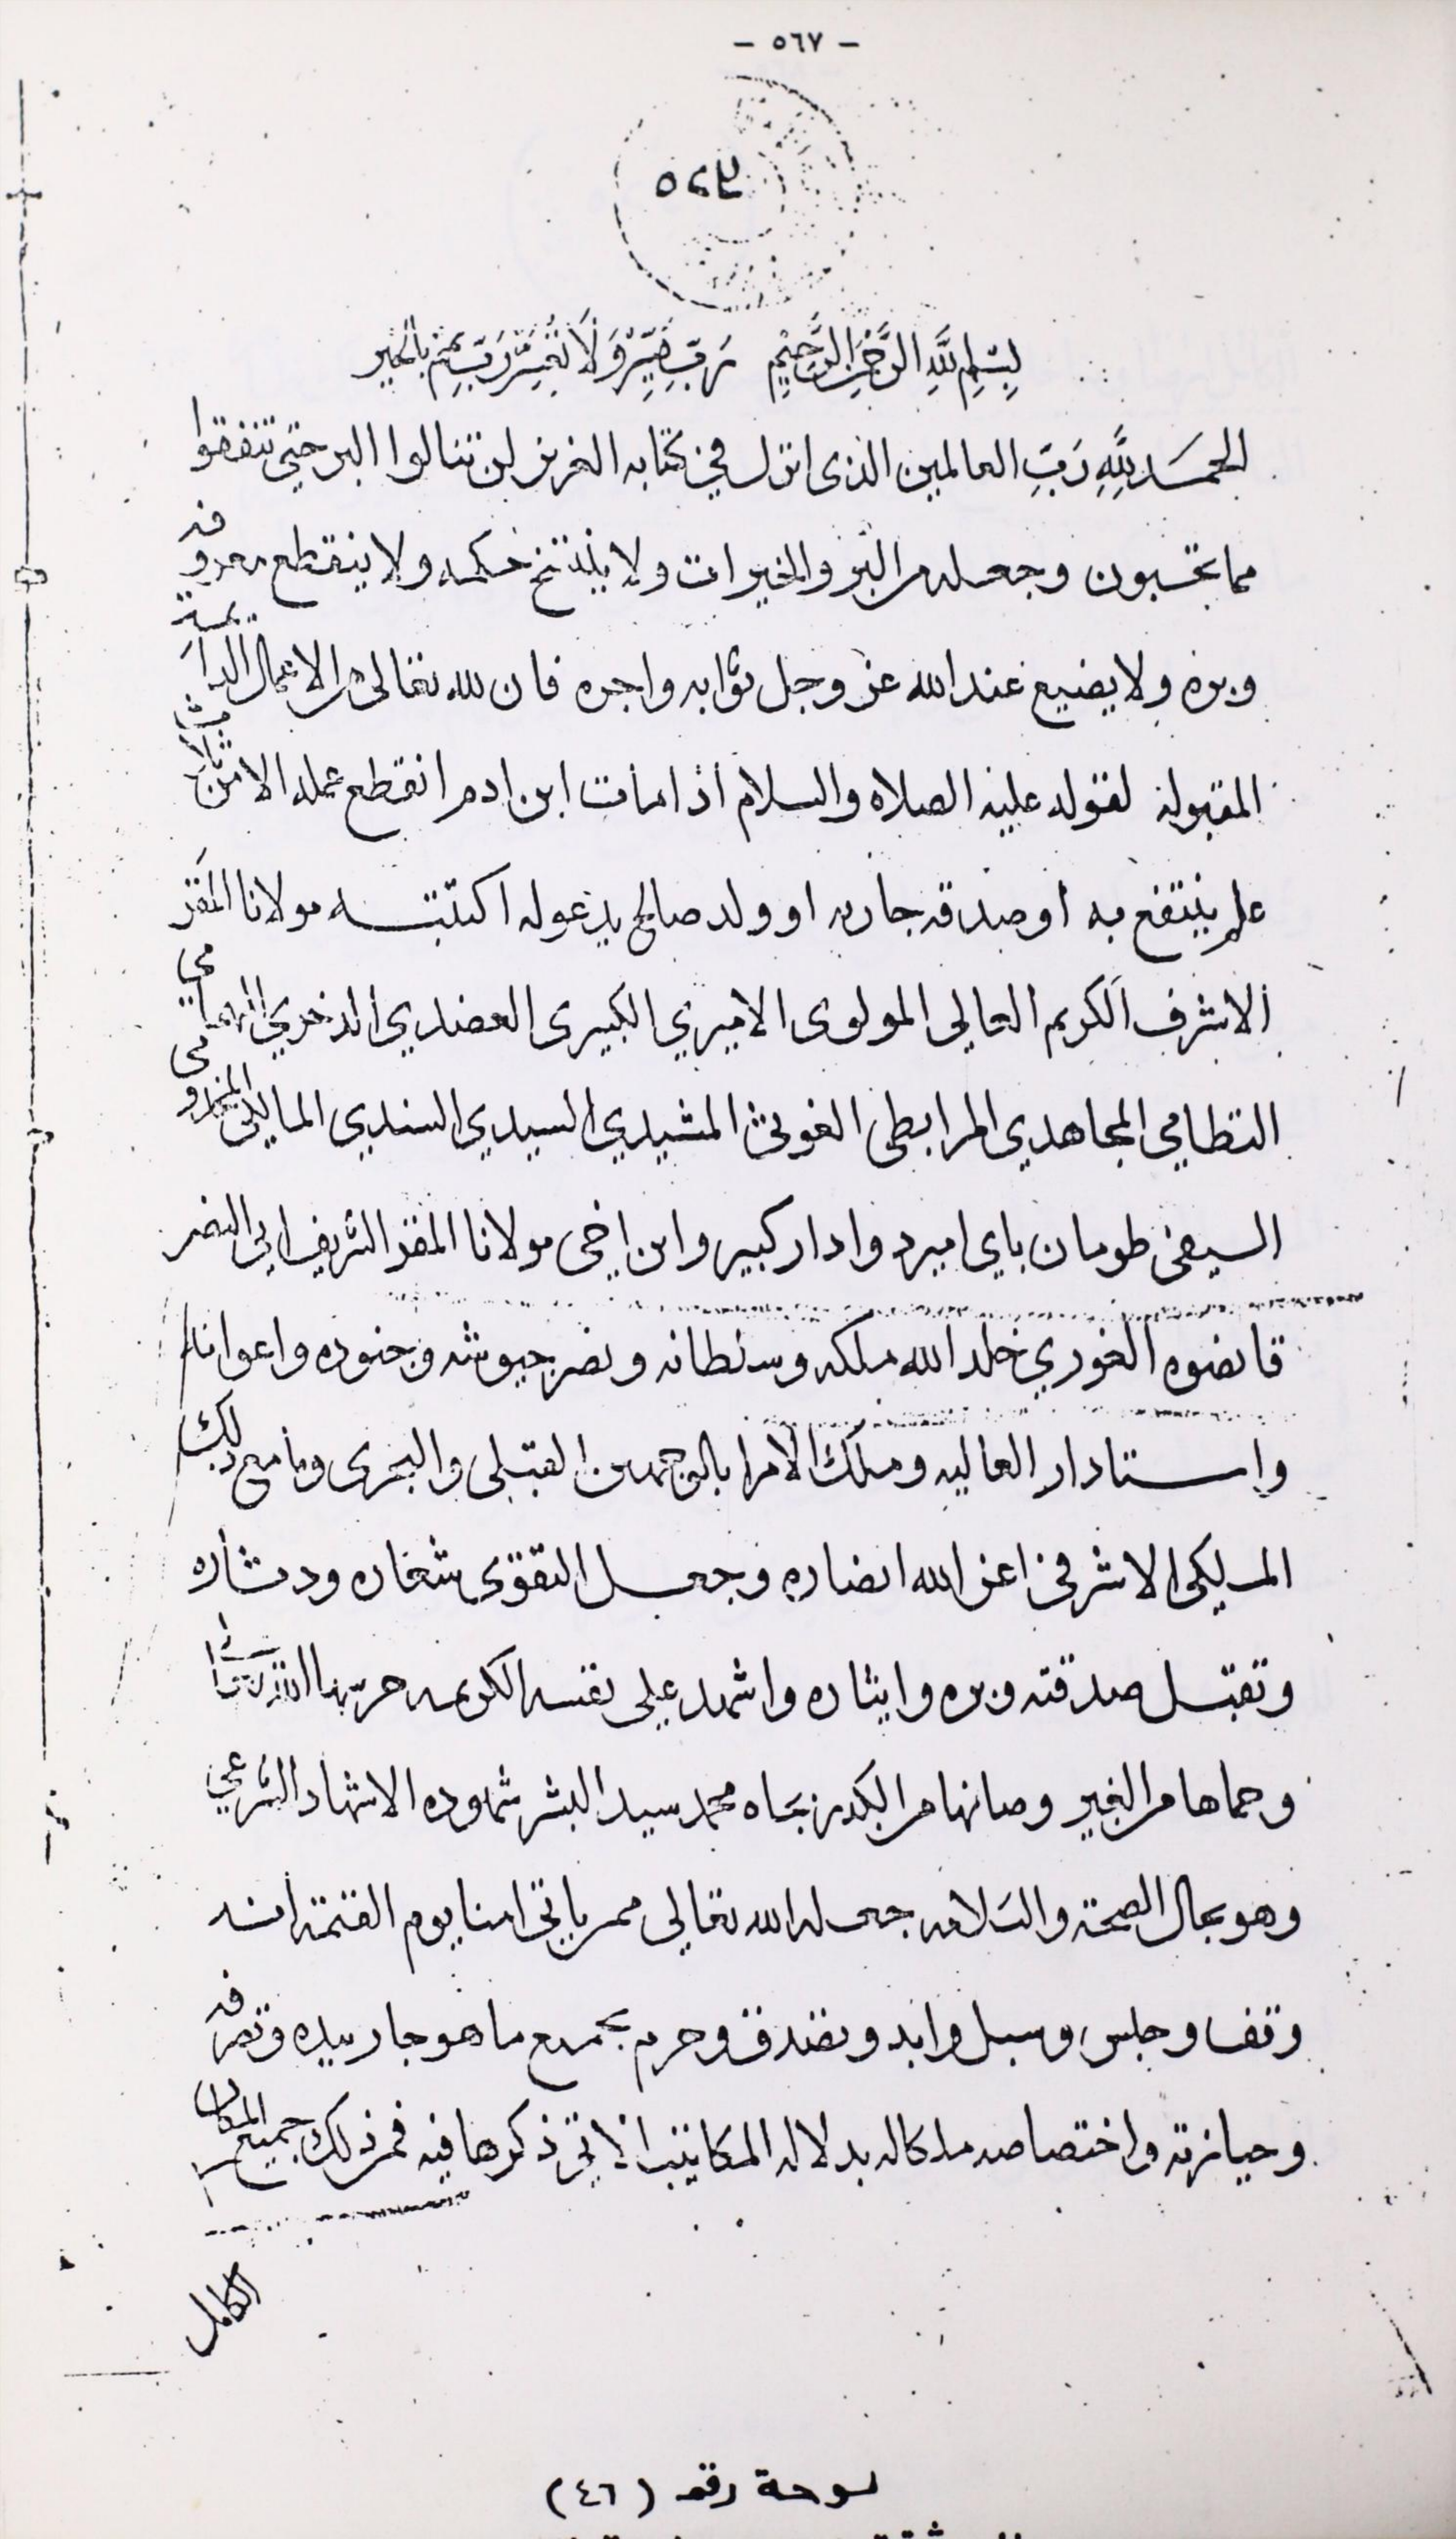 - ٥٦٧ -
بِسْمِ اللَّهِ الرَّحْمَنِ الرَّحِيمِ رَبِّ يَسِّرْ وَلَا تُعَسِّرْ رَبِّ تمّم بالخير
الحمَد لِلَّهِ رَبِّ العالمين الذى انزل في كتابه العزيز لن تنالوا البر حتى تنفقوا
مما تحبون وجعله من البر والخيرات ولا ينتسخ حكمه ولا ينقطع معروفه
وبره ولا يضيع عند الله عز وجل ثوابه واجره فان لله تعالى من الاعمال الدايمة
المقبوله لقوله عليه الصلاه والسلام اذا مات ابن ادم انقطع عمله الا من ثلاث
علم ينتفع به او صدقه جاريه او ولد صالح يدعو له اكتتبه مولانا المقر
الاشرف الكريم العالى المولوى الاميري الكبيرى العضدي الذخري الهمامي
النظامي المجاهدي المرابطى الغوثى المشيدي السيدي السندي المالكى المخدومى
السيفى طومان باي امير دوادار كبير وابن اخى مولانا المقر الشريف ابي النصر
قانصوه الغوري خلد الله ملكه وسلطانه ونصر جيوشه وجنوده واعوانه
واستادار العاليه وملك الامرا بالوجهين القبلى والبحرى وما مع ذلك
الملكى الاشرفى اعز الله انصاره وجعل التقوى شعاره ودثاره
وتقبل صدقته وبره وايثاره واشهد على نفسه الكريمه حرسها الله تعالى
وحماها من الغير وصانها من الكدر بجاه محمد سيد البشر شهوده الاشهاد الشرعي
وهو بحال الصحة والسلامه جعله الله تعالى ممن ياتى امنا يوم القيمة انه
وقف وحبس وسبل وابد وتصدق وحرم بجميع ما هو جار بيده وتصرفه
وحيازته واختصاصه ملكا له بدلاله المكاتيب الاتى ذكرها فيه فمن ذلك جميع المكان
الكامل
لوحة رقم (٤٦)